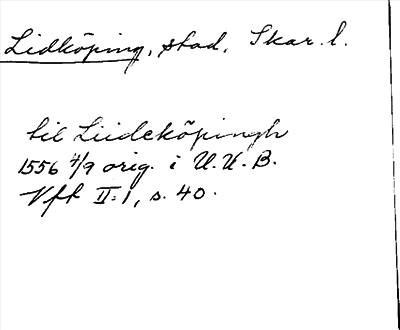 Lidköping, stad, Skar. l.
til Liideköpingh
1556 4/9 orig. i U.U.B.
Vft II:1, s. 40.